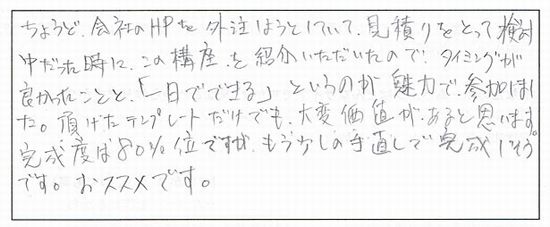 ちょうど、会社のHPを外注しようとしていて、見積りをとって検討
中だった時に、この講座を紹介いただいたので、タイミングが
良かったことと、「一日でできる」というのが魅力で、参加しまし
た。頂けたテンプレートだけでも、大変価値があると思います。
完成度は80%位ですが、もう少しの手直しで完成しそう
です。おススメです。